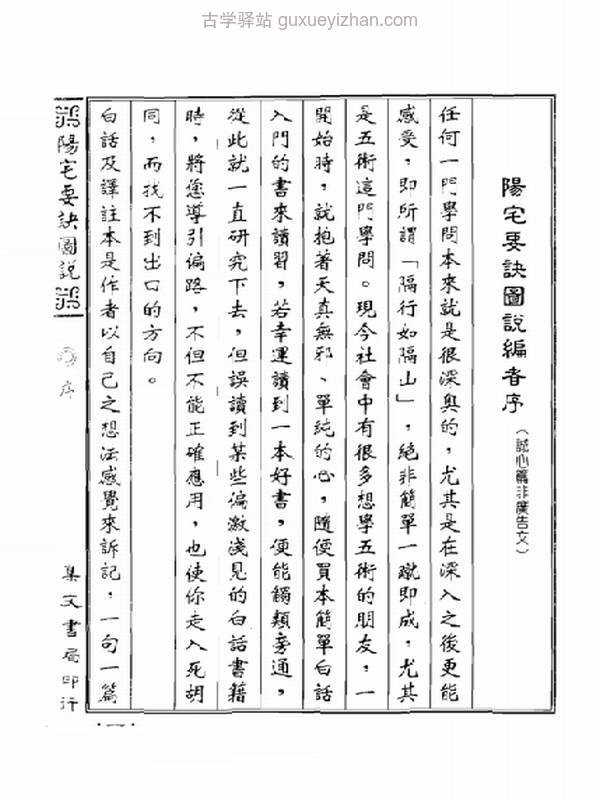 古学驿站 guxueyizhan.com
陽宅要訣圖說編者序(誠心篇非廣告文)
任何一門學問本來就是很深奧的,尤其是在深入之後更能
感受,即所謂「隔行如隔山」,絕非簡單一蹴即成,尤其
是五術這門學問。現今社會中有很多想學五術的朋友,一
開始時,就抱著天真無邪、單純的心,隨便買本簡單白話
入門的書來讀習,若幸運讀到一本好書,便能觸類旁通,
從此就一直研究下去,但誤讀到某些偏激淺見的白話書籍
時,將您導引偏路,不但不能正確應用,也使你走入死胡
同,而找不到出口的方向。
白話及譯註本是作者以自己之想法感覺來訴記,一句一篇
陽宅要訣圖說
序
集文書局印行
一